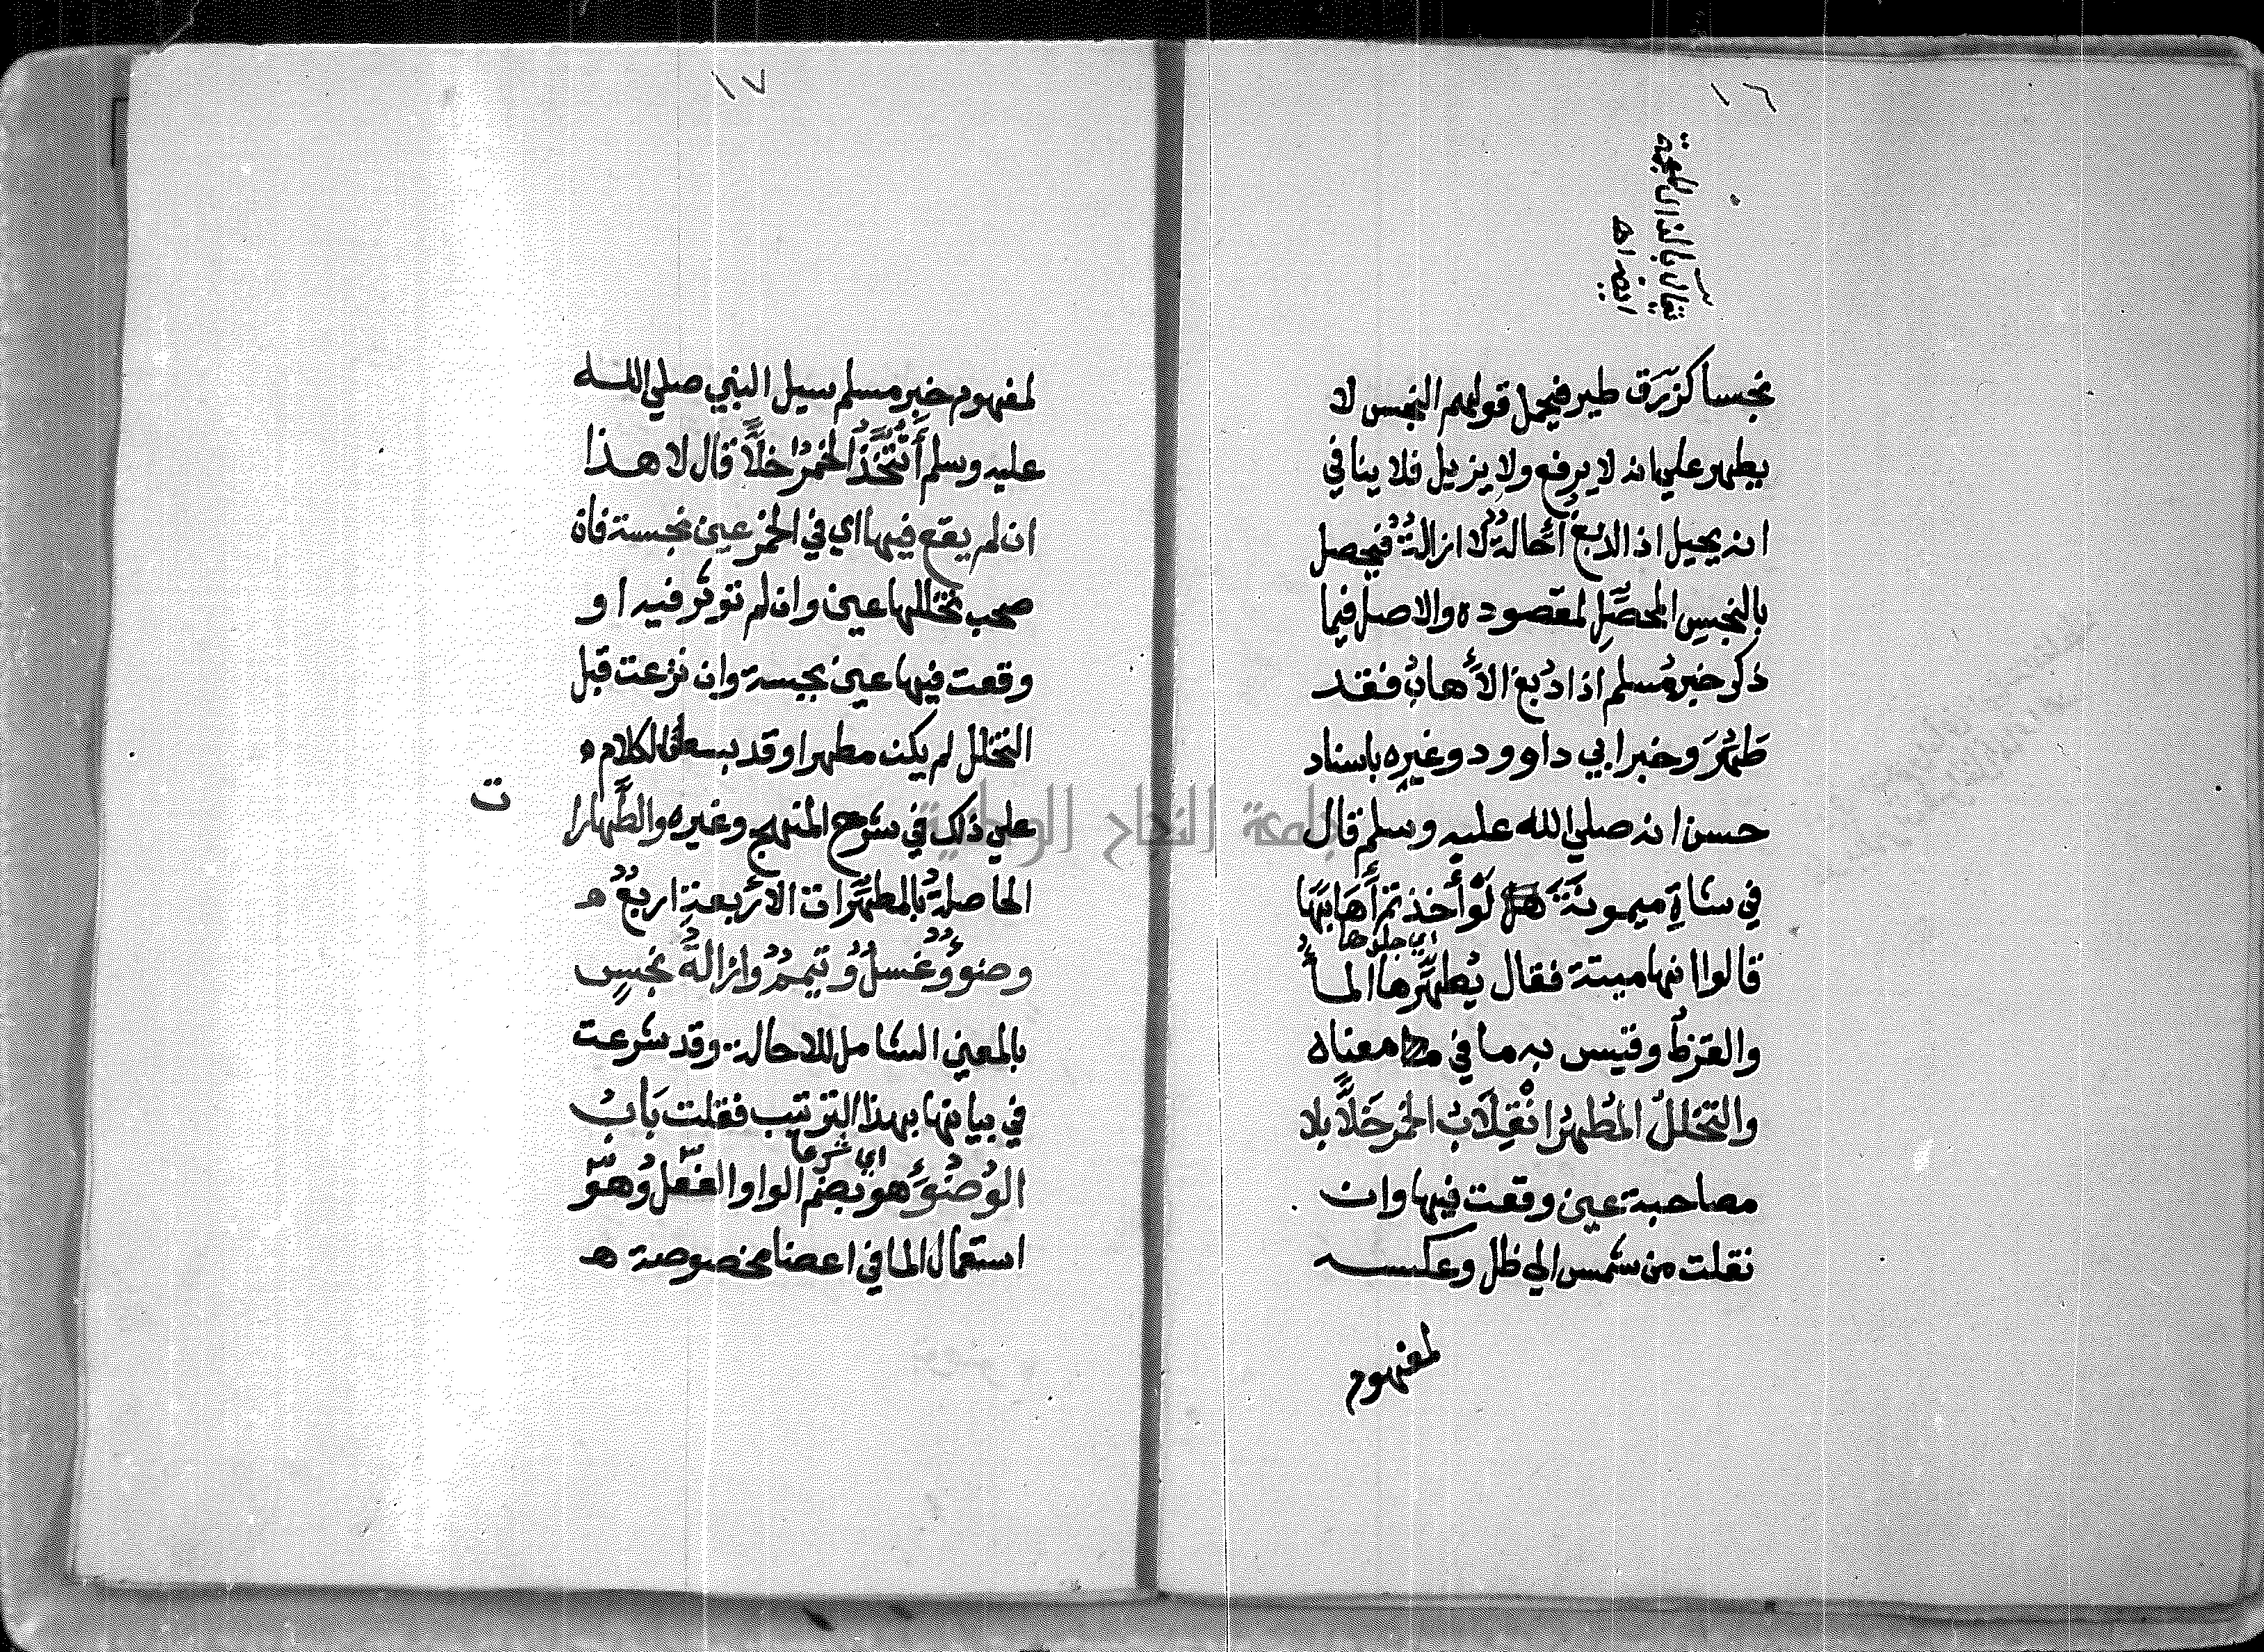 ١٦
يقال بالذال المعجمة
ايضا اهـ
نجسا كزرق طير فيحمل قولهم النجس لا
يطهر علي انه لا يرفع ولا يزيل فلا ينافي
انه يحيل اذ الدبغ اِحالةٌ لا ازالةٌ فيحصل
بالنجسِ المحصِّلِ لمقصوده والاصل فيما
ذكر خبر مُسلم اذا دُبغ الأهابُ فقد
طَهُرَ وخبر ابي داوود وغيرِه باسناد
حسن انه صلي الله عليه وسلم قال
في شاةِ ميمونةَ لَوْ أخذتم أهابَهَا
اي جلدها
قالوا انها ميتة فقال يُطهِّرها المأُ
والقرظُ وقيس به ما في معناه
والتخللُ المُطهرُ انْقِلَابُ الخمرِ خَلًّا بلا
مصاحبة عين وقعت فيها وان
نقلت من شمس الي ظل وعكسه
لمفهوم
١٧
لمفهوم خبرِ مسلم سيل النبي صلي الله
عليه وسلم أَتُتَّخَذُ الخمرُ خلًّا قال لا هذا
ان لم يقع فيها اي في الخمر عين نجسة فان
صحب تخللها عين وان لم توثر فيه او
وقعت فيها عين نجسة وان نزعت قبل
التخلل لم يكن مطهرا وقد بسطت الكلام
علي ذلك في شرح المنهج وغيره والطَّهارا
ت
الحاصلةُ بالمطهِّرات الأربعةِ اربعٌ هـ
وضوءٌ وُغسلٌ وُتيممٌ وُازالةُ نجسٍ
بالمعني الشامل للاحالة وقد شرعت
في بيانها بهذا الترتيب فقلت بَابُ
اي شرعا
الوُضُوءِ هو بضم الواو الفعل وُهوَ
استعمال الما في اعضا مخصوصة هـ
جامعة النجاح الوطنية